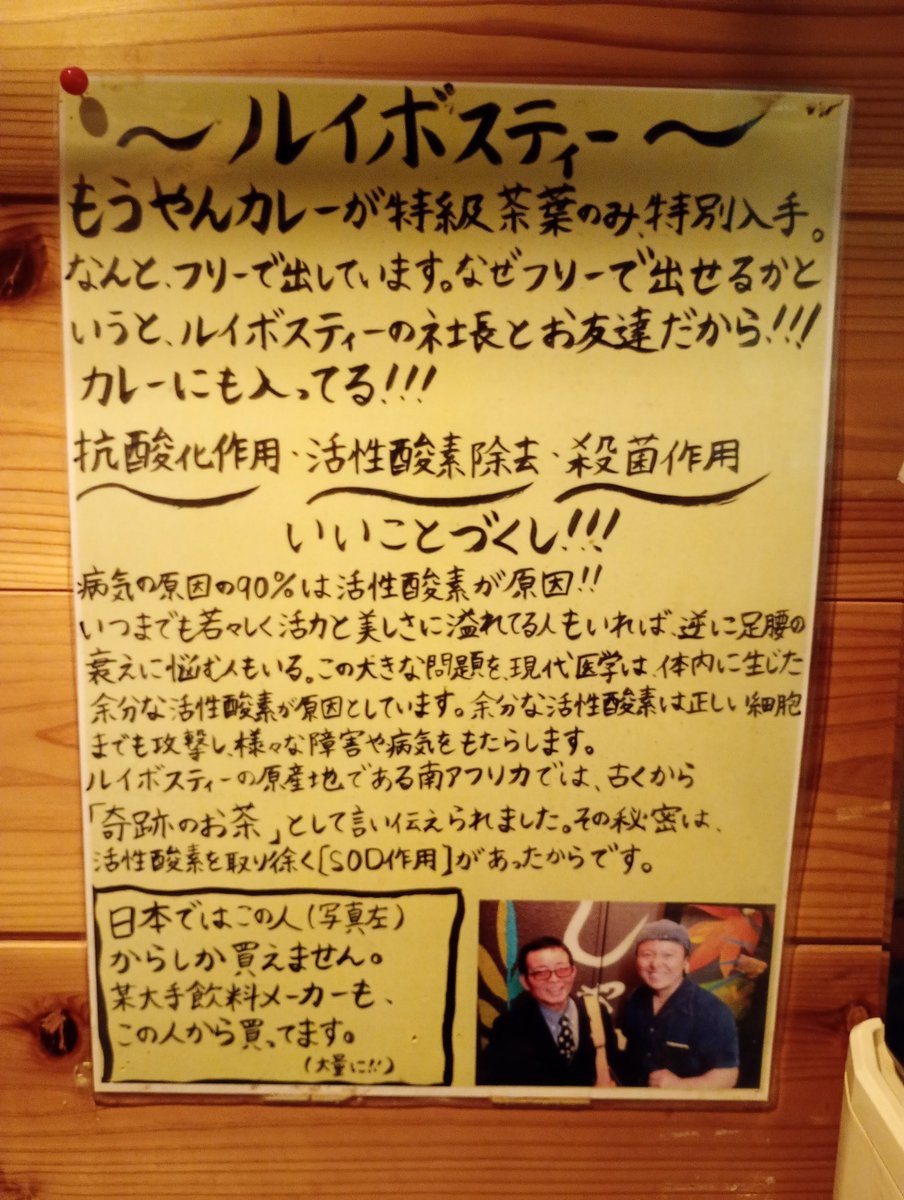 ～ルイボスティー～
もうやんカレーが特級茶葉のみ、特別入手。
なんと、フリーで出しています。なぜフリーで出せるかと
いうと、ルイボスティーの社長とお友達だから!!!
カレーにも入ってる!!!
抗酸化作用・活性酸素除去・殺菌作用
いいことづくし!!!
病気の原因の90%は活性酸素が原因!!
いつまでも若々しく活力と美しさに溢れてる人もいれば、逆に足腰の
衰えに悩む人もいる。この大きな問題を、現代医学は、体内に生じた
余分な活性酸素が原因としています。余分な活性酸素は正しい細胞
までも攻撃し、様々な障害や病気をもたらします。
ルイボスティーの原産地である南アフリカでは、古くから
「奇跡のお茶」として言い伝えられました。その秘密は、
活性酸素を取り徐く[SOD作用]があったからです。
日本ではこの人(写真左)
からしか買えません。
某大手飲料メーカーも、
この人から買ってます。
(大量にだ)